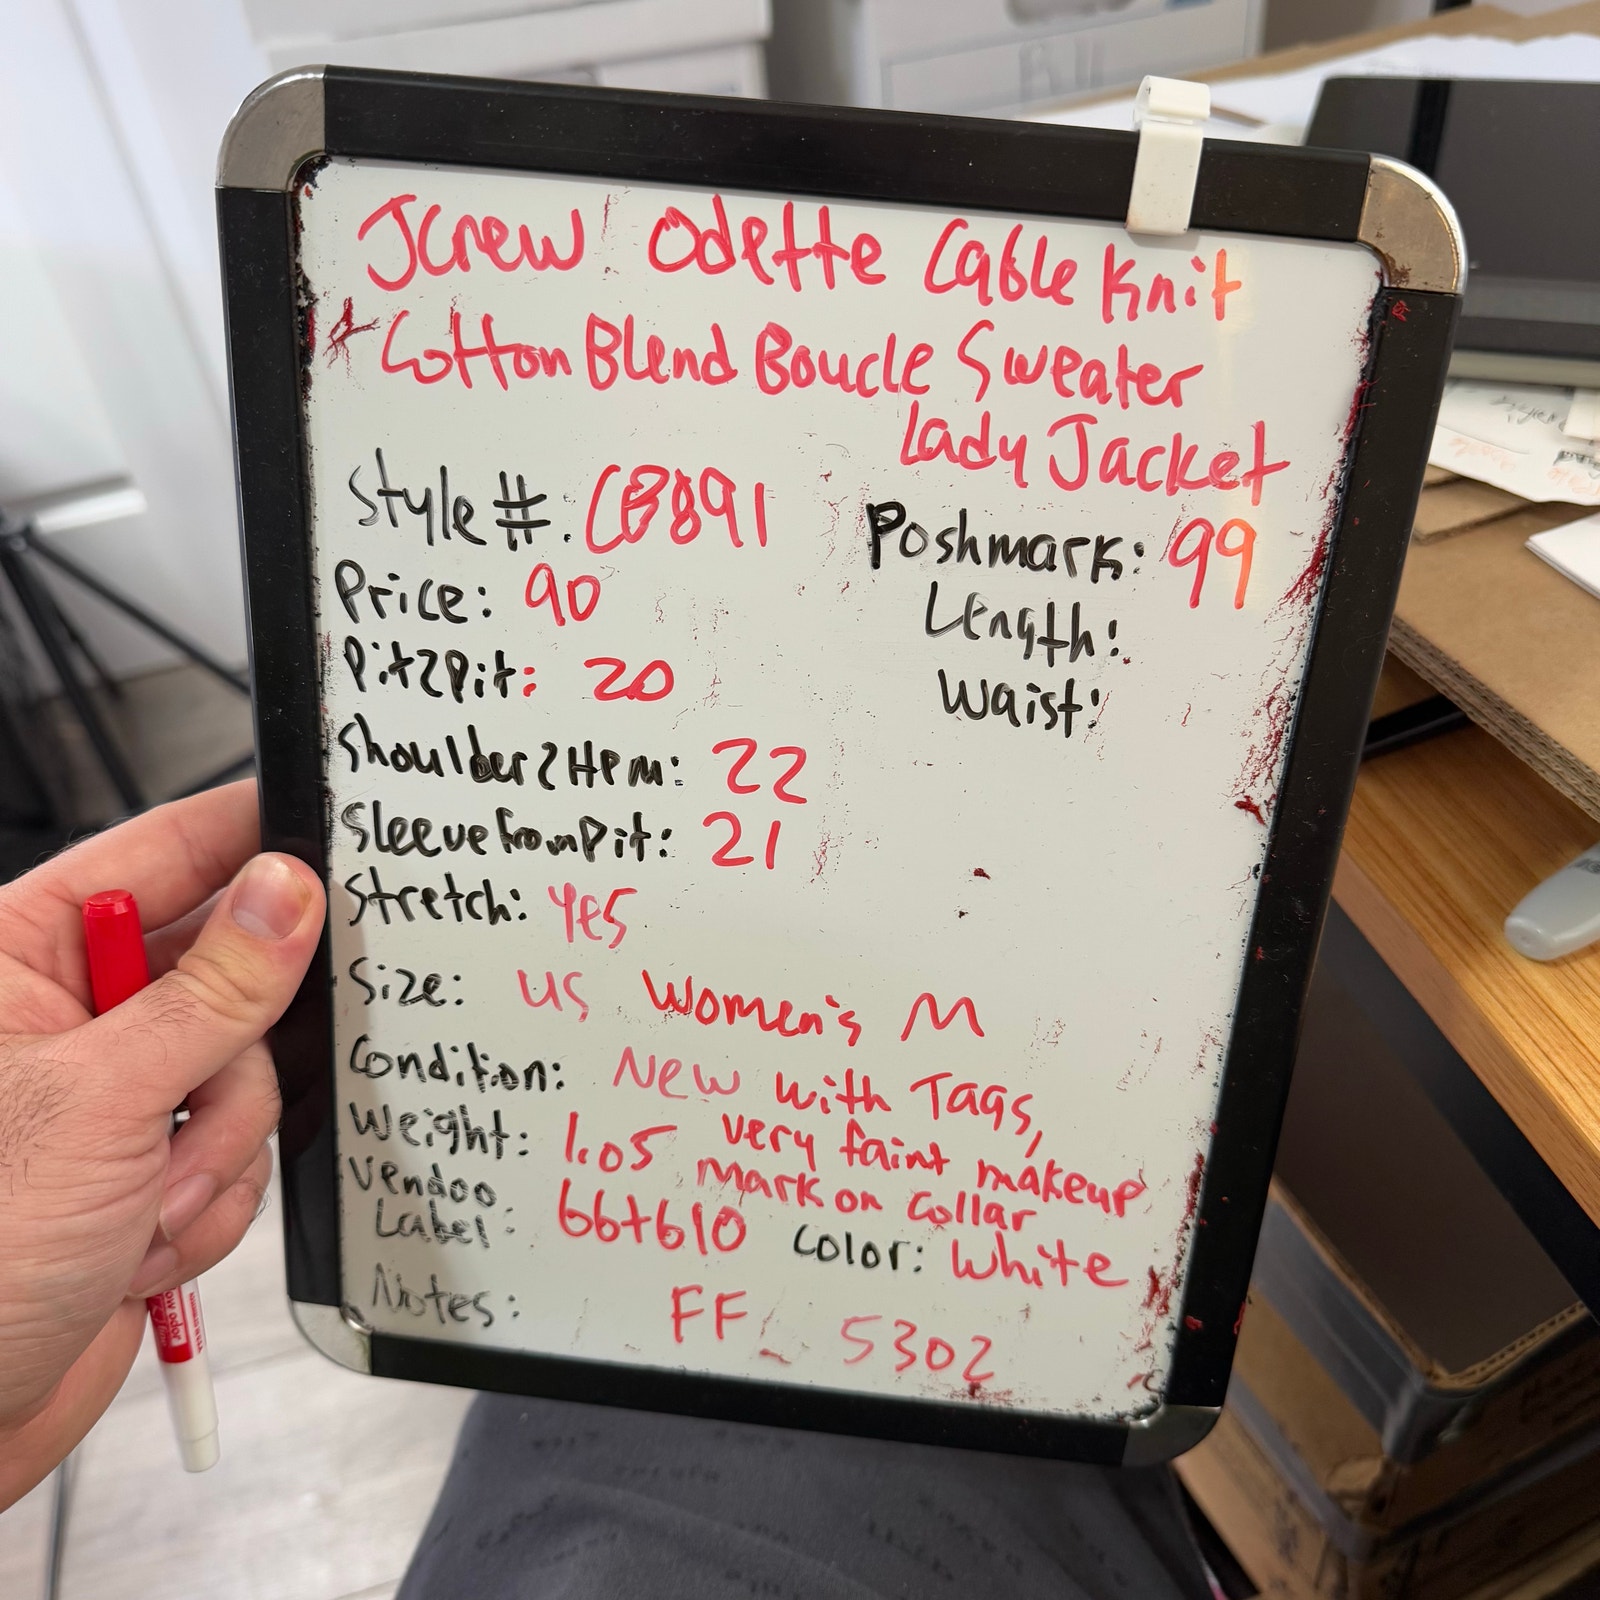 JCrew Odette Cable Knit
Cotton Blend Boucle Sweater
Lady Jacket
Style #: CB891
Poshmark: 99
Price: 90
Length:
Pit2Pit: 20
Waist:
Shoulder2Hem: 22
Sleeve from Pit: 21
Stretch: Yes
Size: US Women's M
Condition: New with Tags,
very faint makeup
mark on collar
Weight: 1.05
Vendoo
Label: 66+610
Color: White
Notes: FF_ 5302
low odor